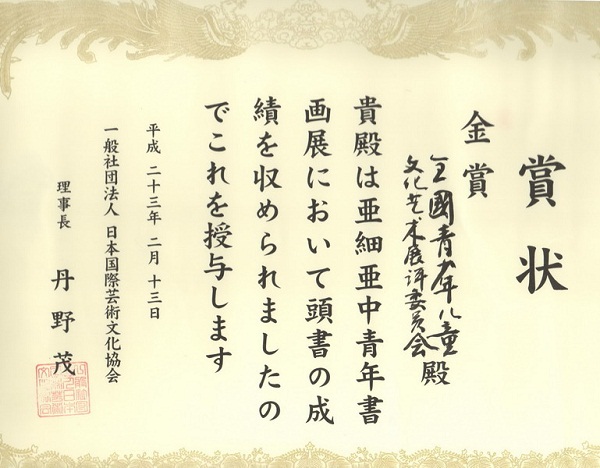 賞状
金賞
全國青少年儿童
文化艺术展评委员会
殿
貴殿は亜細亜中青年書
画展において頭書の成
績を収められましたの
でこれを授与します
平成二十三年二月十三日
一般社団法人 日本国際芸術文化協会
理事長 丹野茂